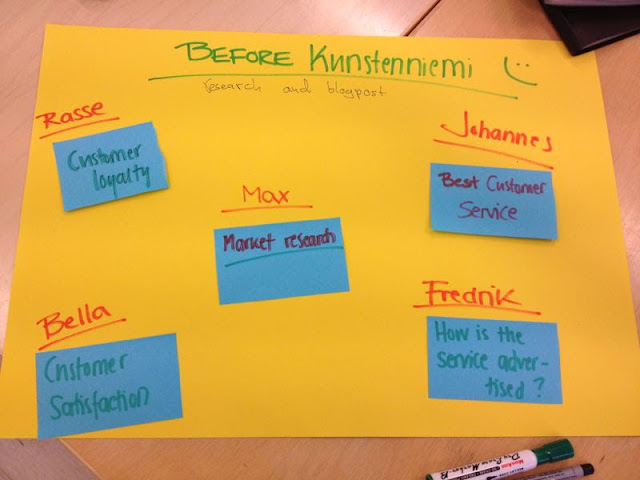 BEFORE Kunstenniemi
research and blogpost
Rasse
Customer
loyalty
Johannes
Best Customer
Service
Max
Market research
Bella
Customer
Satisfaction
Fredrik
How is the
service adver-
tised?